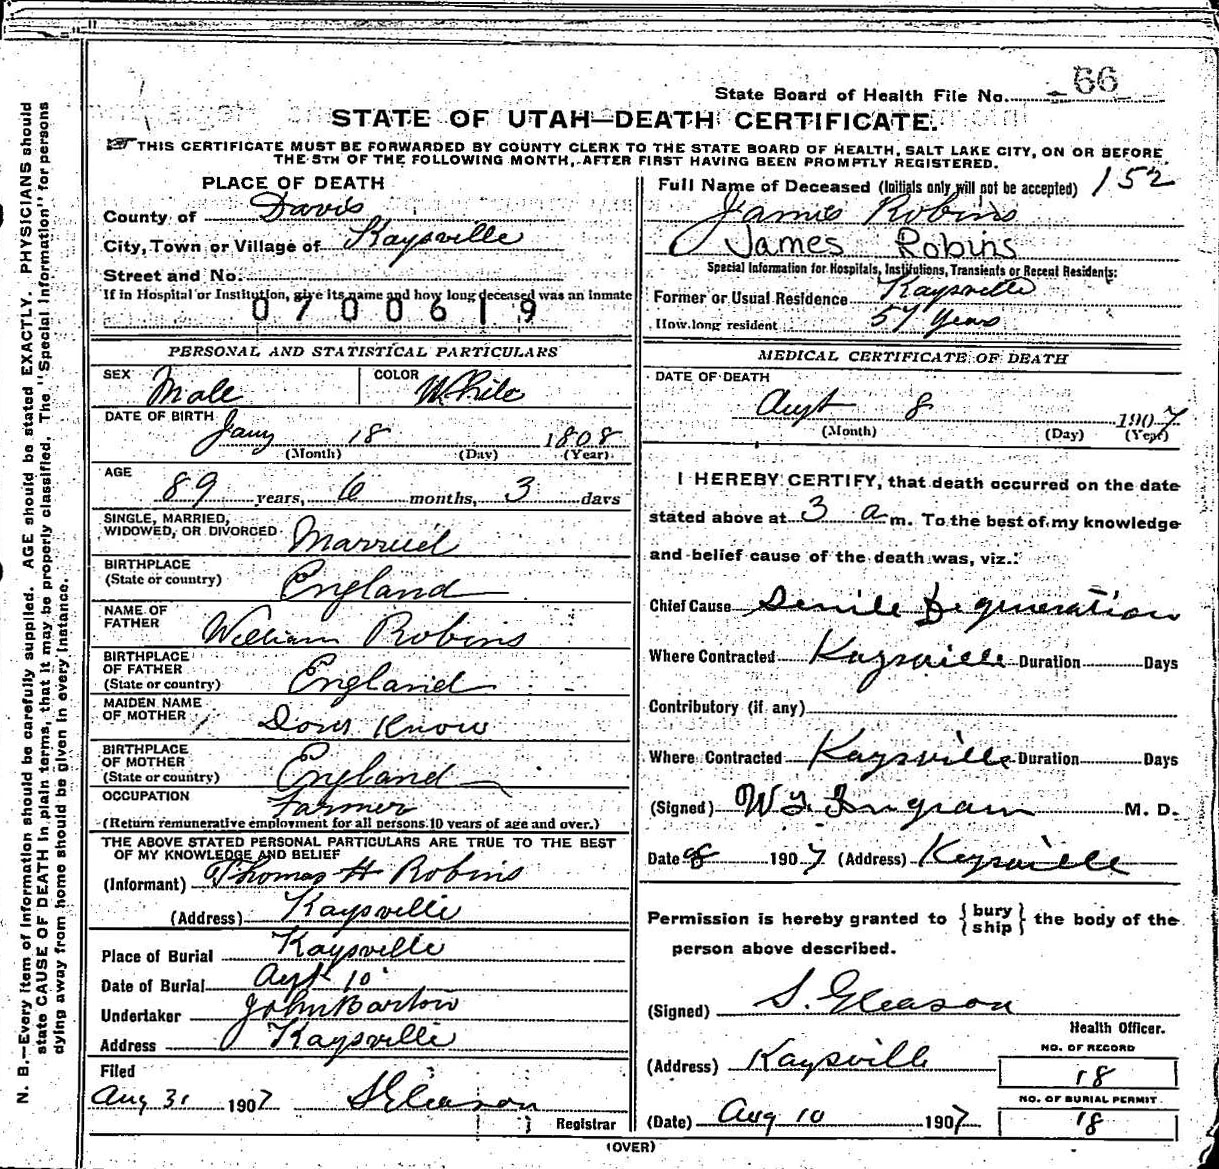 State Board of Health File No. 66
STATE OF UTAH—DEATH CERTIFICATE.
THIS CERTIFICATE MUST BE FORWARDED BY COUNTY CLERK TO THE STATE BOARD OF HEALTH, SALT LAKE CITY, ON OR BEFORE
THE 5TH OF THE FOLLOWING MONTH, AFTER FIRST HAVING BEEN PROMPTLY REGISTERED.
PLACE OF DEATH
County of Davis
City, Town or Village of Kaysville
Street and No.
If in Hospital or Institution, give its name and how long deceased was an inmate
0700619
PERSONAL AND STATISTICAL PARTICULARS
SEX Male COLOR White
DATE OF BIRTH Jany 18 1808
(Month) (Day) (Year)
AGE 89 years, 6 months, 3 days
SINGLE, MARRIED,
WIDOWED, OR DIVORCED Married
BIRTHPLACE
(State or country) England
NAME OF
FATHER William Robins
BIRTHPLACE
OF FATHER
(State or country) England
MAIDEN NAME
OF MOTHER Dont Know
BIRTHPLACE
OF MOTHER
(State or country) England
OCCUPATION Farmer
(Return remunerative employment for all persons 10 years of age and over.)
THE ABOVE STATED PERSONAL PARTICULARS ARE TRUE TO THE BEST
OF MY KNOWLEDGE AND BELIEF
(Informant) Thomas H Robins
(Address) Kaysville
Place of Burial Kaysville
Date of Burial Augt 10
Undertaker John Barton
Address Kaysville
Filed
Aug 31 1907 S Gleason
Registrar
Full Name of Deceased (Initials only will not be accepted) 152
James Robins
James Robins
Special Information for Hospitals, Institutions, Transients or Recent Residents:
Former or Usual Residence Kaysville
How long resident 57 Years
MEDICAL CERTIFICATE OF DEATH
DATE OF DEATH
Augt 8 1907
(Month) (Day) (Year)
I HEREBY CERTIFY, that death occurred on the date
stated above at 3 a m. To the best of my knowledge
and belief cause of the death was, viz.:
Chief Cause Senile Degeneration
Where Contracted Kaysville Duration Days
Contributory (if any)
Where Contracted Kaysville Duration Days
(Signed) Ingram M. D.
Date 8 1907 (Address) Kaysville
Permission is hereby granted to {bury
ship} the body of the
person above described.
(Signed) S. Gleason
Health Officer.
(Address) Kaysville
NO. OF RECORD
18
NO. OF BURIAL PERMIT
(Date) Aug 10 1907 18
(OVER)
N. B.—Every item of information should be carefully supplied. AGE should be stated EXACTLY. PHYSICIANS should
state CAUSE OF DEATH in plain terms, that it may be properly classified. The "Special Information" for persons
dying away from home should be given in every instance.